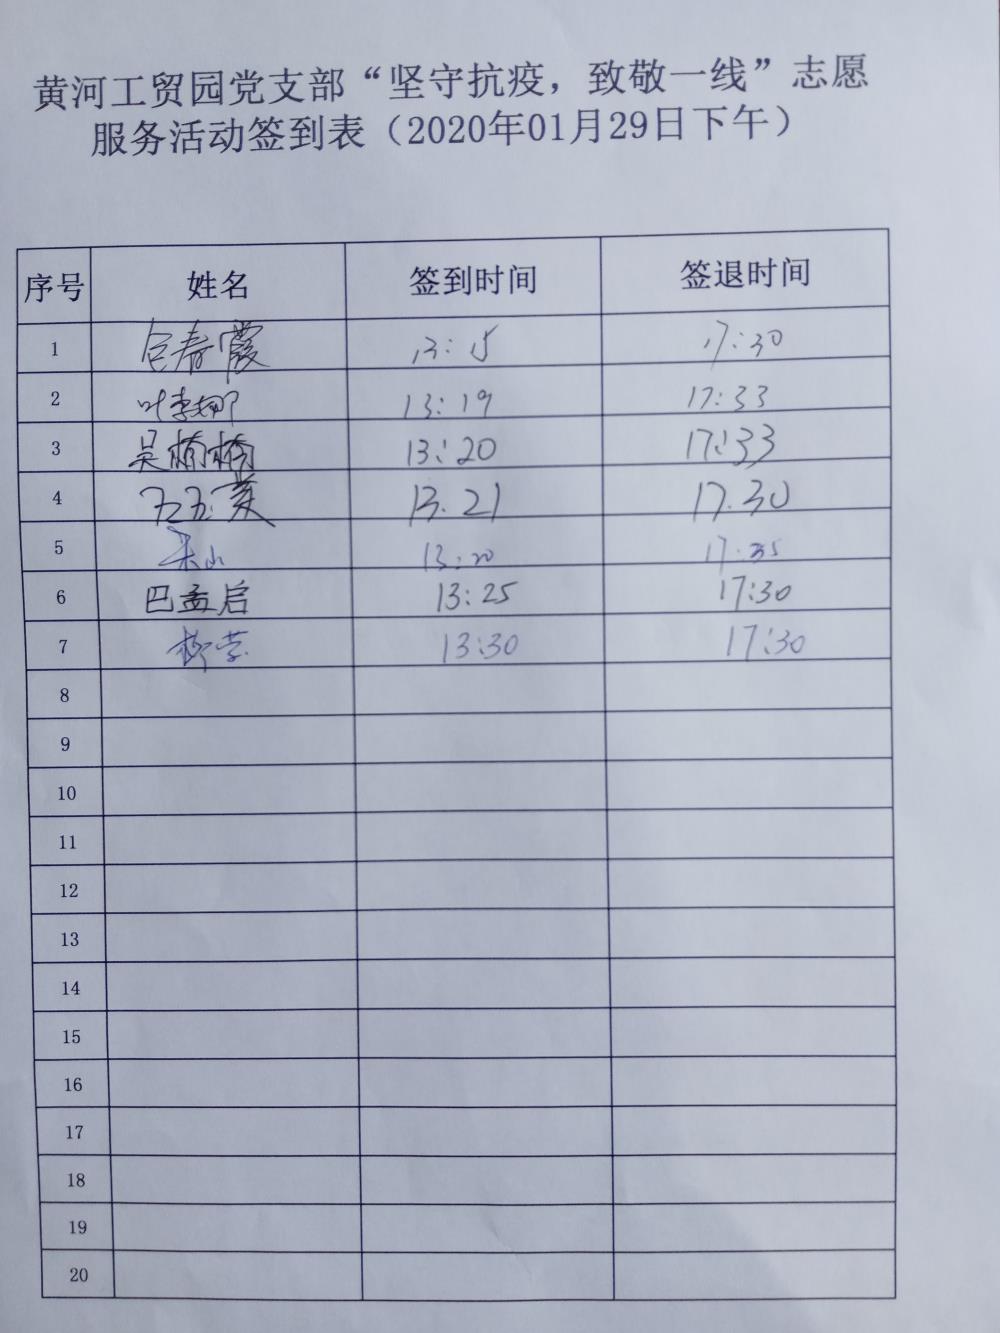 黄河工贸园党支部“坚守抗疫，致敬一线”志愿
服务活动签到表（2020年01月29日下午）
序号 姓名 签到时间 签退时间
1 春霞 13:15 17:30
2 叶李娜 13:19 17:33
3 吴楠楠 13:20 17:33
4 13.21 17.30
5 13:20 17:35
6 巴孟启 13:25 17:30
7 13:30 17:30
8
9
10
11
12
13
14
15
16
17
18
19
20